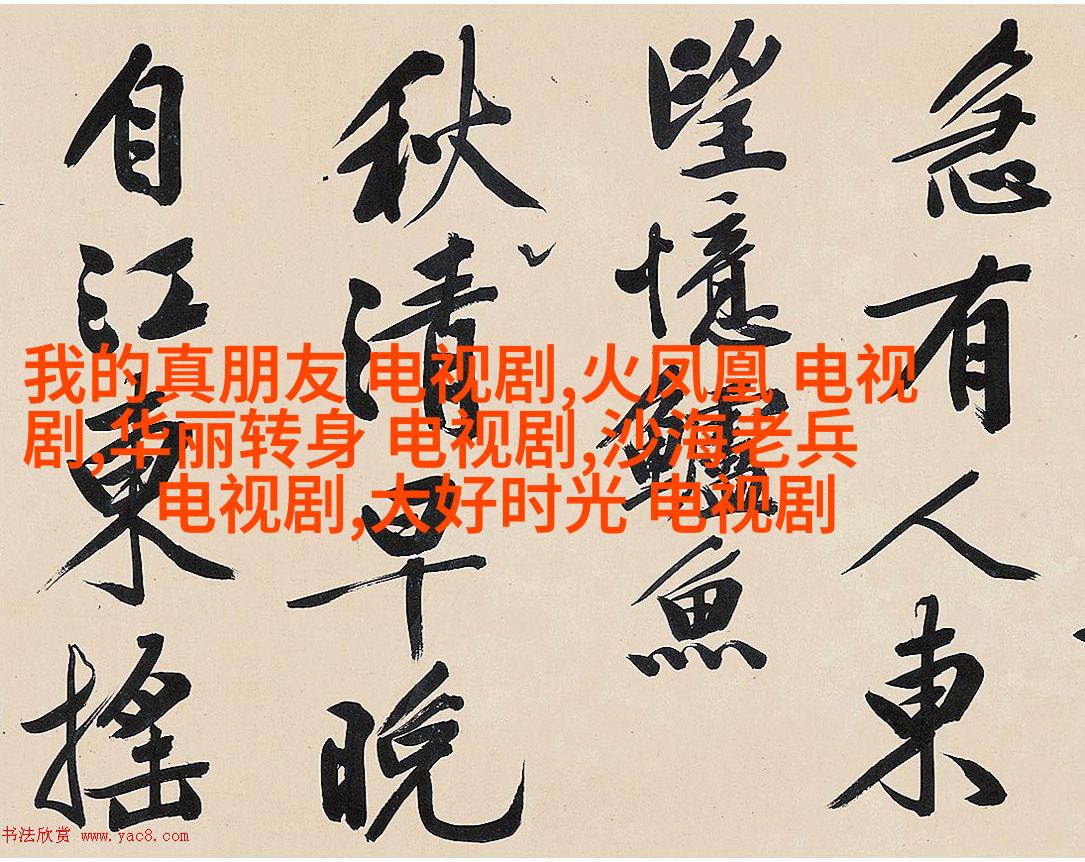 急有人東
望憶鱸魚
秋清早晚
自江東搖
我的真朋友 电视剧,火凤凰 电视
剧,华丽转身 电视剧,沙海老兵
电视剧,大好时光 电视剧
书法欣赏 www.yac8.com